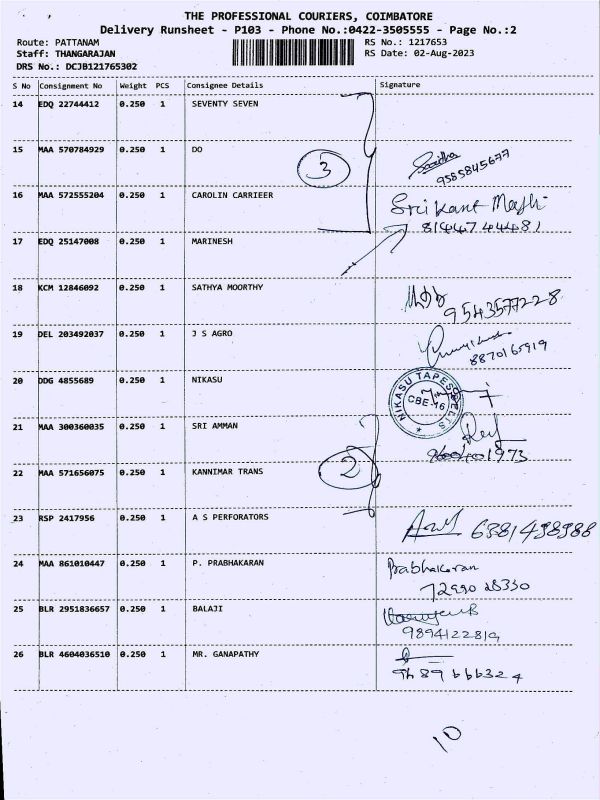 THE PROFESSIONAL COURIERS, COIMBATORE
Delivery Runsheet - P103 - Phone No.:0422-3505555 - Page No.:2
Route: PATTANAM RS No.: 1217653
Staff: THANGARAJAN RS Date: 02-Aug-2023
DRS No.: DCJB121765302
S No Consignment No Weight PCS Consignee Details Signature
14 EDQ 22744412 0.250 1 SEVENTY SEVEN
15 MAA 570784929 0.250 1 DO
3
9585845677
16 MAA 572555204 0.250 1 CAROLIN CARRIEER
Srikant Majhi
8144744481
17 EDQ 25147008 0.250 1 MARINESH
18 KCM 12846092 0.250 1 SATHYA MOORTHY
9543577228
19 DEL 203492037 0.250 1 J S AGRO
8870165919
20 DDG 4855689 0.250 1 NIKASU
NIKASU TAPES
CBE-16
21 MAA 300360035 0.250 1 SRI AMMAN
22 MAA 571656075 0.250 1 KANNIMAR TRANS
2
23 RSP 2417956 0.250 1 A S PERFORATORS
6381498988
24 MAA 861010447 0.250 1 P. PRABHAKARAN
Prabhakaran
25 BLR 2951836657 0.250 1 BALAJI
9894122819
26 BLR 4604036510 0.250 1 MR. GANAPATHY
10